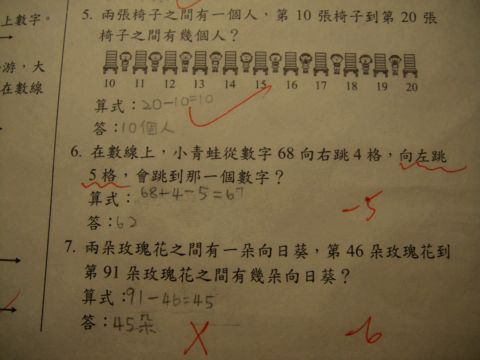 上數字。
5. 兩張椅子之間有一個人，第 10 張椅子到第 20 張
椅子之間有幾個人？
10 11 12 13 14 15 16 17 18 19 20
算式：20-10=10
答：10個人
游，大
在數線
6. 在數線上，小青蛙從數字 68 向右跳 4 格，向左跳
5 格，會跳到那一個數字？
算式：68+4-5=67
答：62
-5
7. 兩朵玫瑰花之間有一朵向日葵，第 46 朵玫瑰花到
第 91 朵玫瑰花之間有幾朵向日葵？
算式：91-46=45
答：45朵
-6